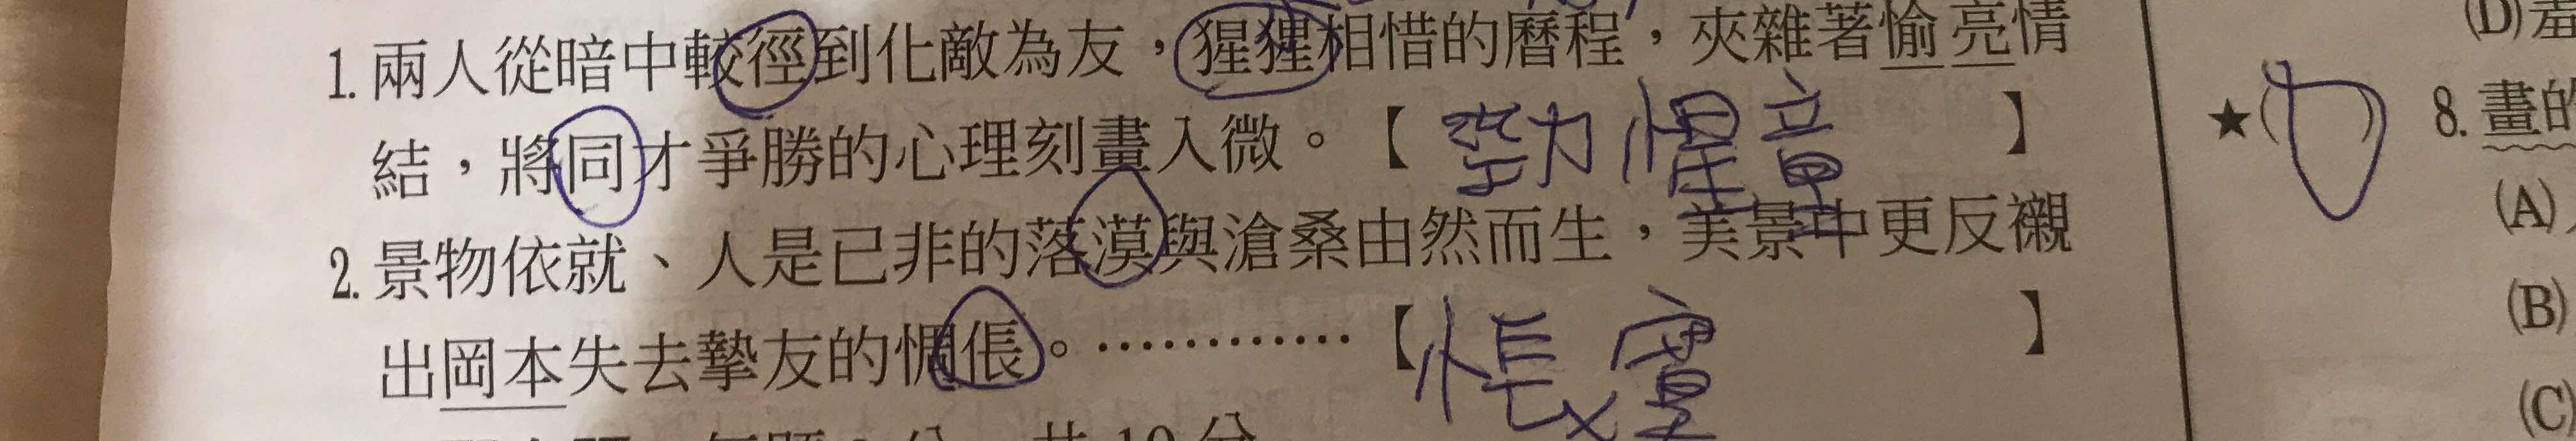 1. 兩人從暗中較徑到化敵為友，猩猩相惜的曆程，夾雜著愉亮情
結，將同才爭勝的心理刻畫入微。【勁 惺 】
2. 景物依就、人是已非的落漠與滄桑由然而生，美景中更反襯
出岡本失去摯友的惆倀。…………【悵 】
(D)
★( ) 8. 畫的
(A)
(B)
(C)